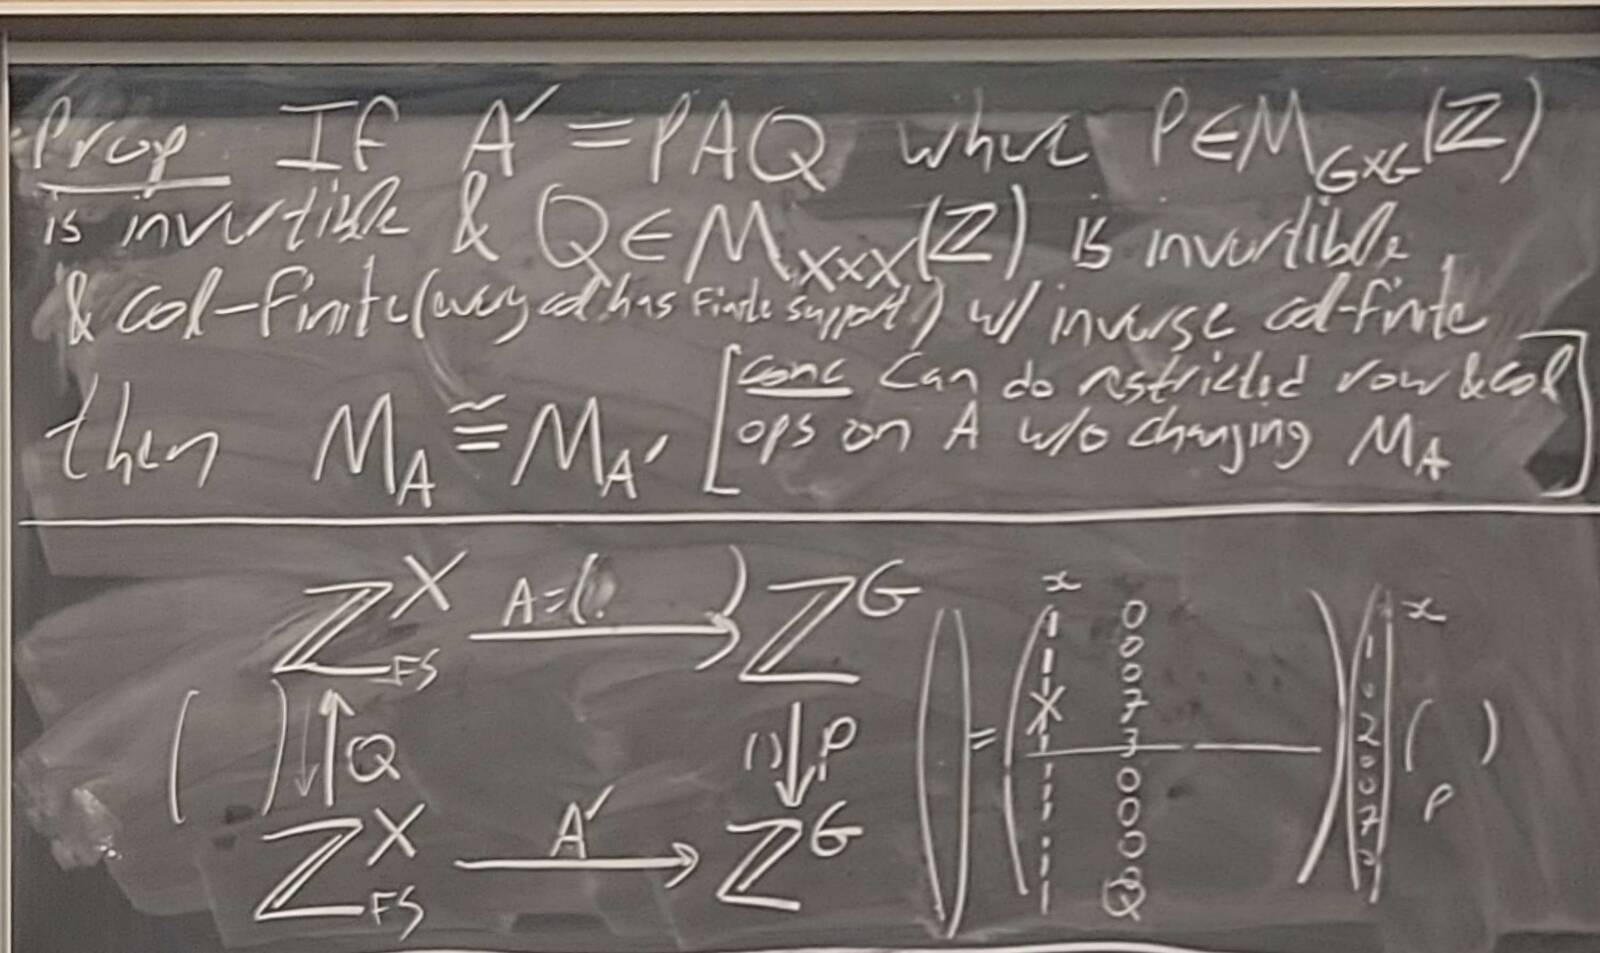 Prop. If A′ = PAQ where P∈M_{G×G}(ℤ)
is invertible & Q∈M_{X×X}(ℤ) is invertible
& col-finite (every col has finite support) w/ inverse col-finite
then M_A ≅ M_A′ [conc Can do restricted row & col
ops on A w/o changing M_A]
ℤ^X_{FS} A=( ) ℤ^G
Q P
ℤ^X_{FS} A′ ℤ^G
( ) = ( ) ( ) ( )
x 0 0 0 7 3 0 0 0 Q
x 1 0 2 0 0 7 0
P